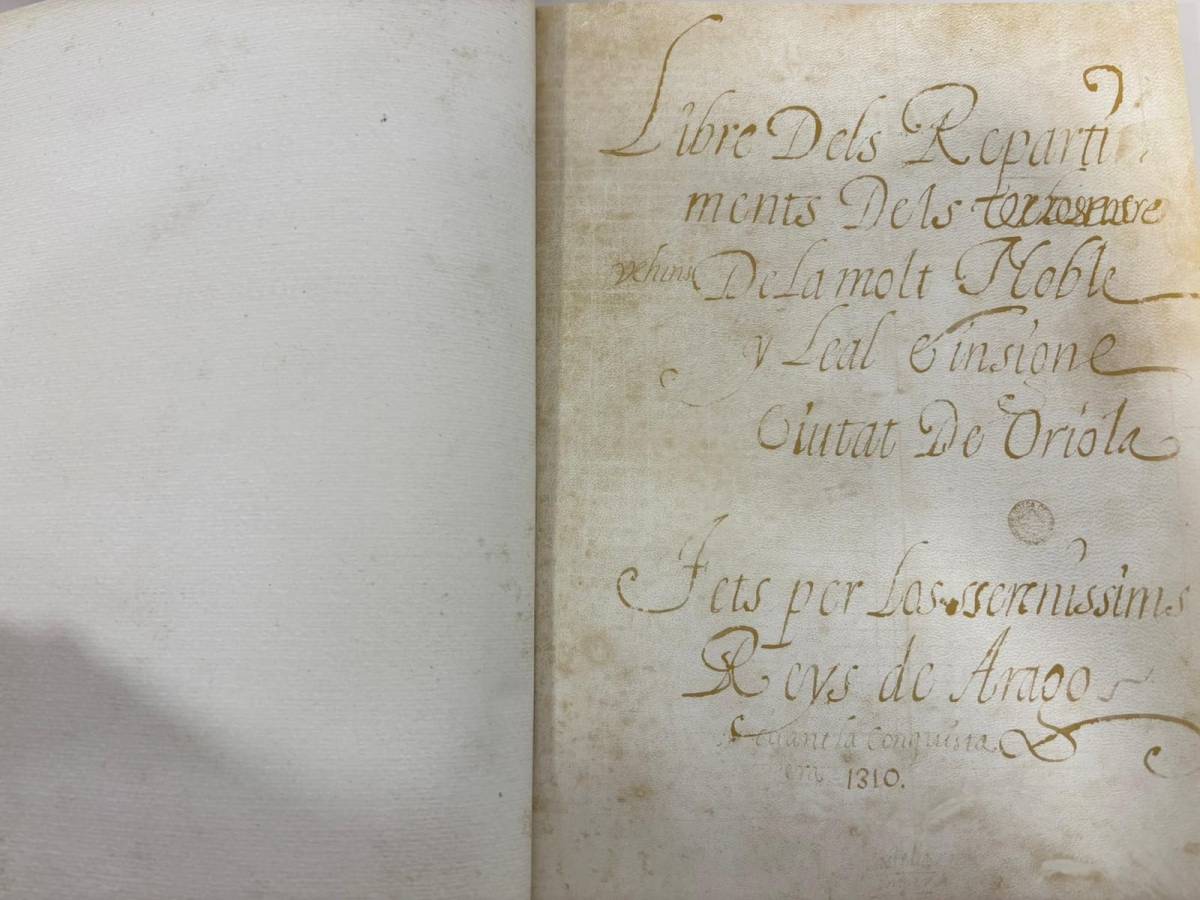 Libre Dels Reparti
ments Dels
De la molt Noble
y Leal & insigne
Ciutat De Oriola
Fets per Los serenissims
Reys de Arago
conquista
era 1310.